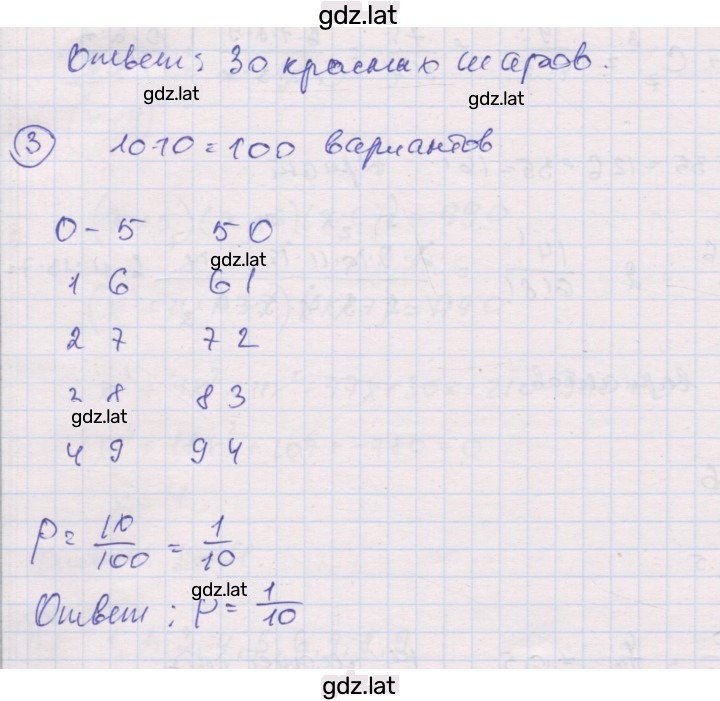 gdz.lat
Ответ: 30 красных шаров.
gdz.lat gdz.lat
3 10·10=100 вариантов
0 - 5 50
gdz.lat
1 6 61
2 7 72
2 8 83
gdz.lat
4 9 94
P = 10/100 = 1/10
gdz.lat
Ответ: P = 1/10
gdz.lat